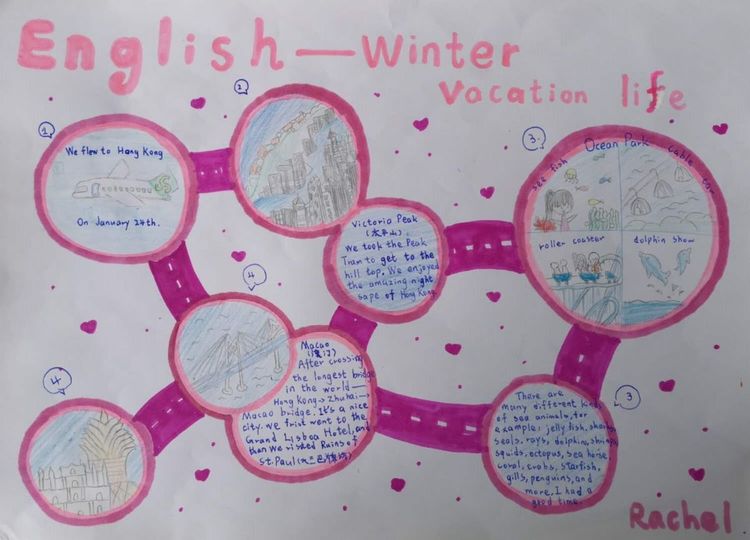 English—Winter
Vacation life
1
We flew to Hong Kong
On January 24th.
2
Victoria Peak
(太平山).
We took the Peak
Tram to get to the
hill top. We enjoyed
the amazing night
sape of Hong Kong.
3.
Ocean Park
see fish
cable car
roller coaster
dolphin show
3
There are
many different kinds
of sea animals, for
example: jelly fish, sharks
seals, rays, dolphins, shrimps
squids, octopus, sea horse,
coral, crabs, starfish,
gills, penguins, and
more. I had a
good time.
4
Macao
(澳门)
After crossing
the longest bridge
in the world—
Hong Kong→Zhuhai→
Macao bridge. It's a nice
city. we frist went to the
Grand Lisboa Hotel, and
than we visited Ruins of
St. Paul (大三巴牌坊)
4
Rachel